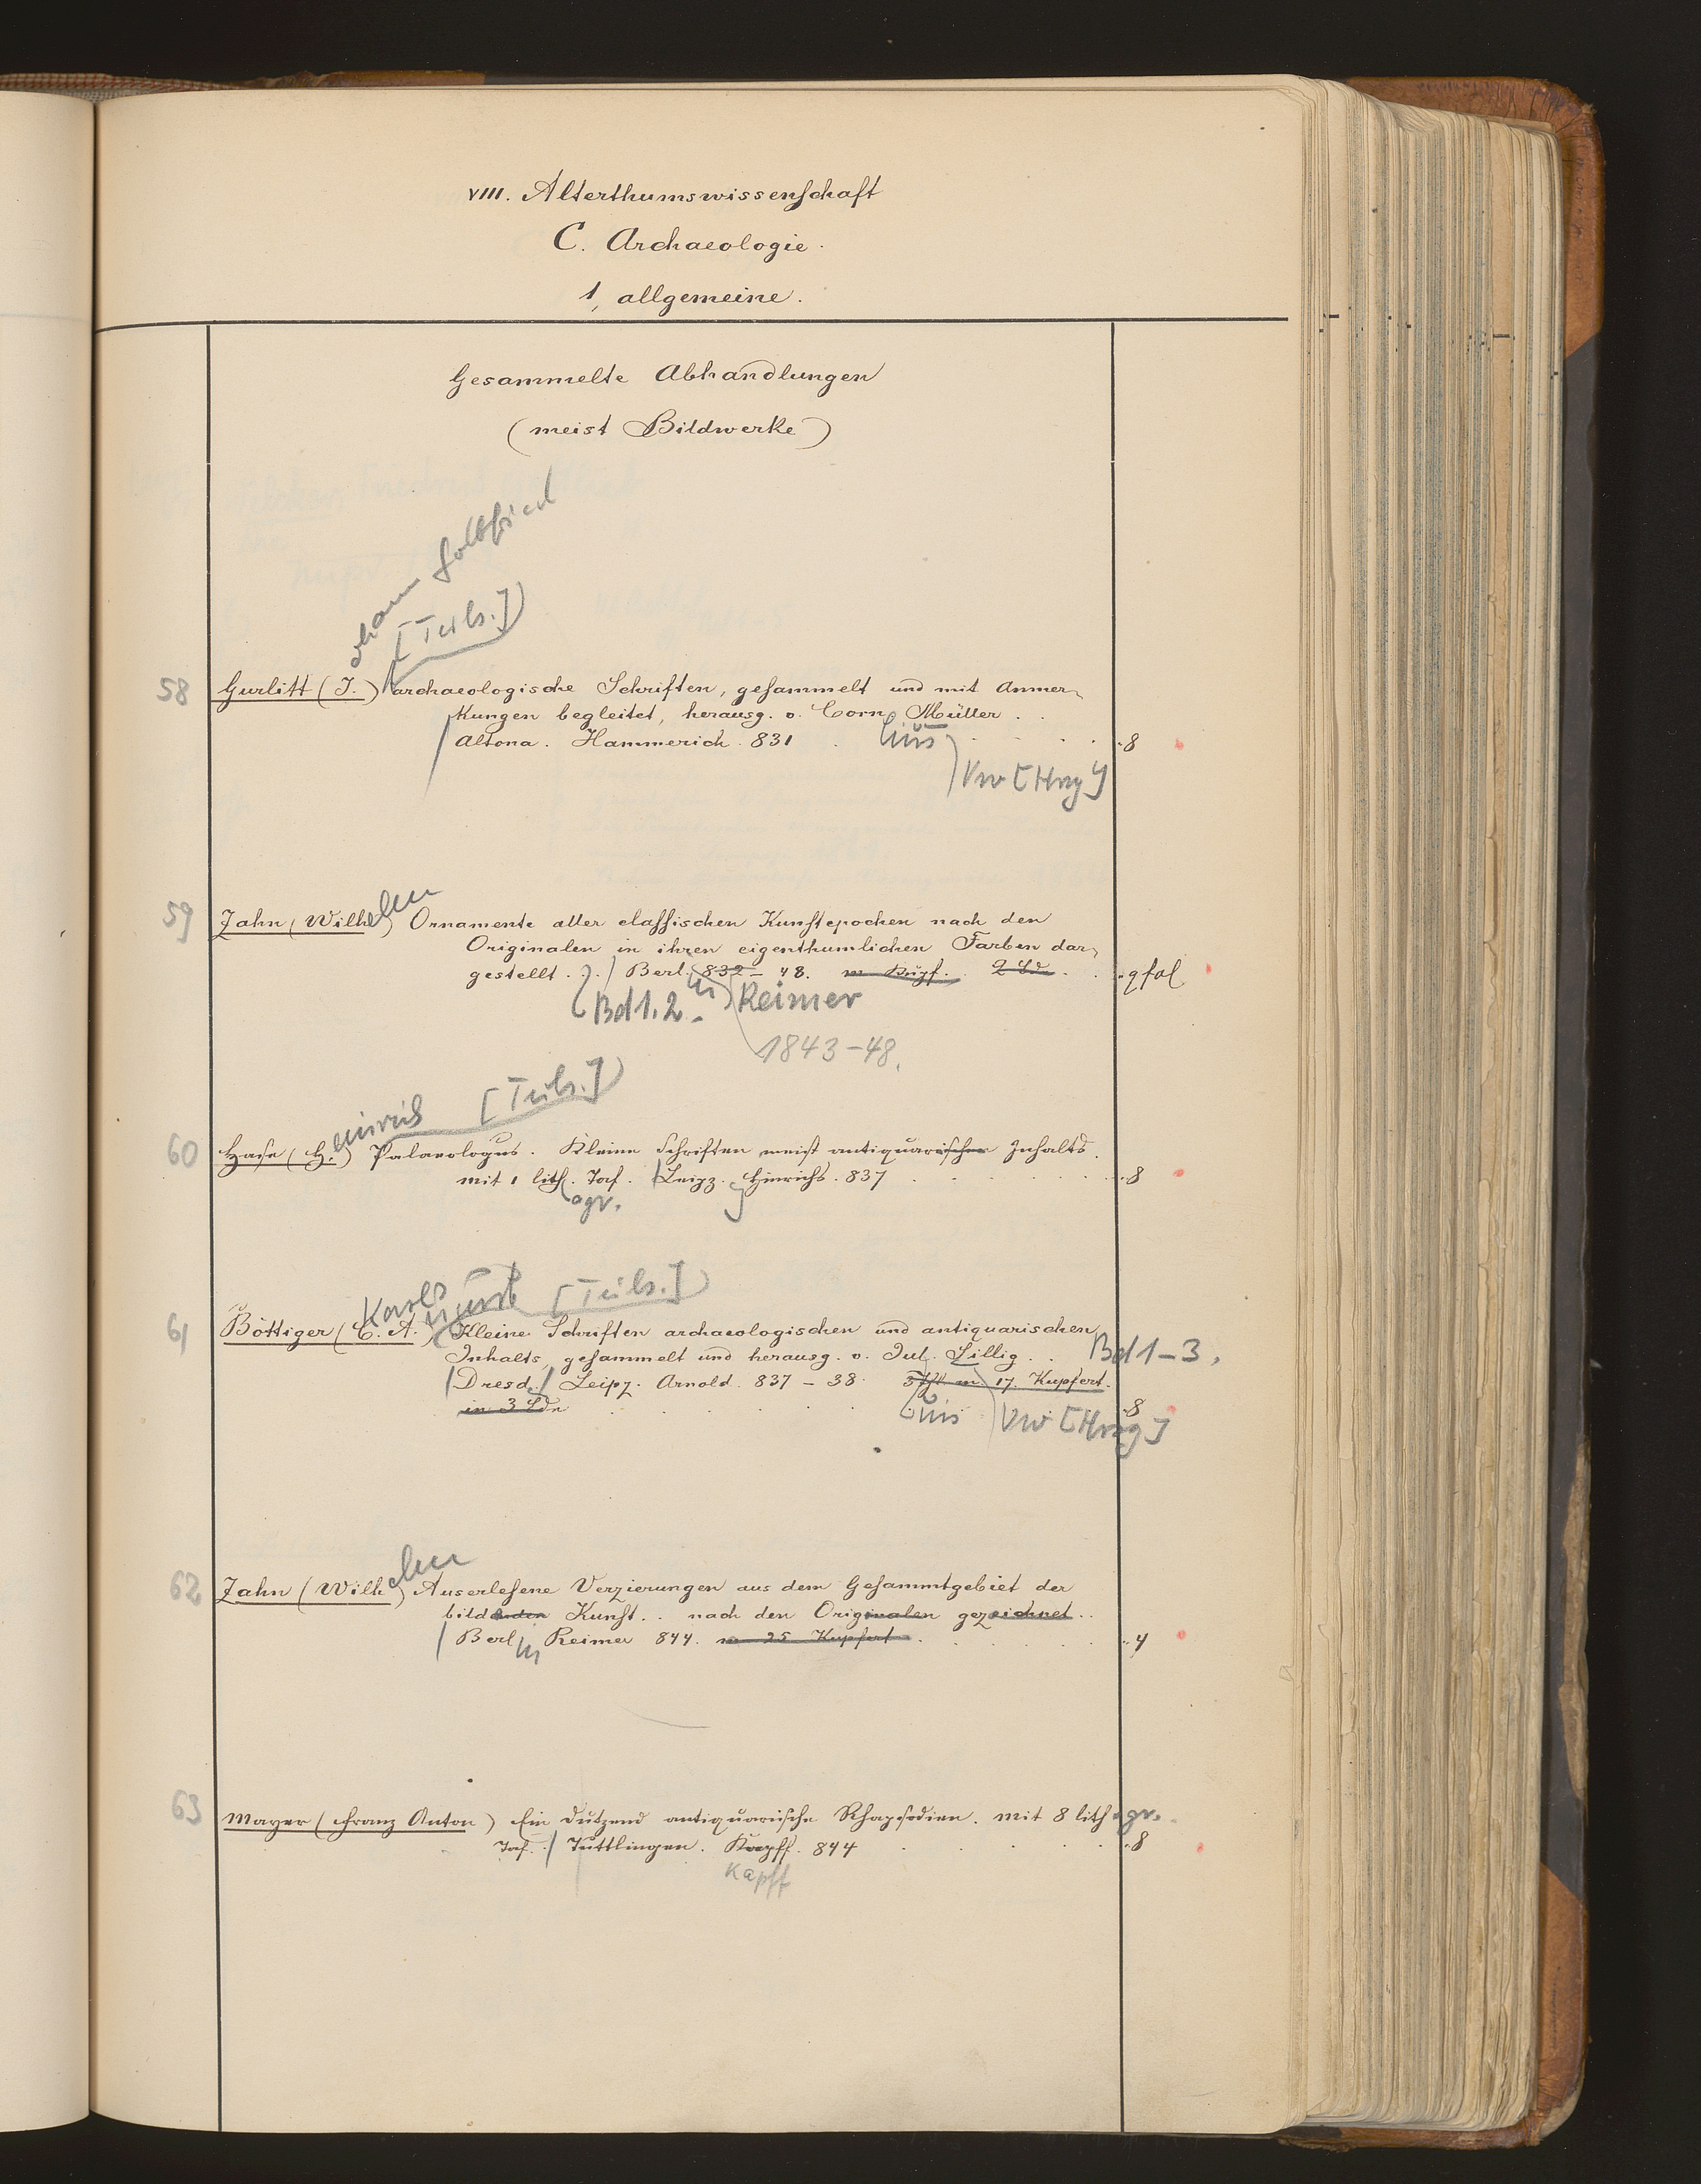 VIII. Alterthumswissenschaft
C. Archaeologie.
1, allgemeine.
Gesammelte Abhandlungen
(meist Bildwerke)
ohann Gottfried
[Teils.]
58 Gurlitt (J.) archaeologische Schriften, gesammelt und mit Anmer-
kungen begleitet, herausg. v. Corn. Müller.
Altona. Hammerich. 831 8
lius
Vw [Hrsg]
59 Zahn (Wilh) Ornamente aller classischen Kunstepochen nach den
elm
Originalen in ihren eigenthumlichen Farben dar-
gestellt. . / Berl. 832 - 48. m. Kupf. 2 Bde. qfol
Bd 1. 2. in Reimer
1843-48.
einrich [Teils.]
60 Hase (H.) Palaeologus. Kleine Schriften meist antiquarischen Inhalts.
mit 1 lith. Taf. Leipz. Hinrichs. 837 8
ogr.
Karl August [Teils.]
61 Böttiger (C. A.) Kleine Schriften archaeologischen und antiquarischen
Inhalts, gesammelt und herausg. v. Jul. Sillig. . Bd 1-3,
Dresd. / Leipz. Arnold. 837 - 38. 3 Thl. m. 17. Kupfert.
in 3 Bde 8
ius Vw [Hrsg]
elm
62 Zahn (Wilh) Auserlesene Verzierungen aus dem Gesammtgebiet der
bildenden Kunst. . nach den Originalen gezeichnet. .
Berl in Reimer 844. m 25 Kupfert 4
63 Mayer (Franz Anton) Ein Dutzend antiquarische Rhapsodien. mit 8 lithogr.
Taf. / Tuttlingen. Kapff. 844 8
Kapff